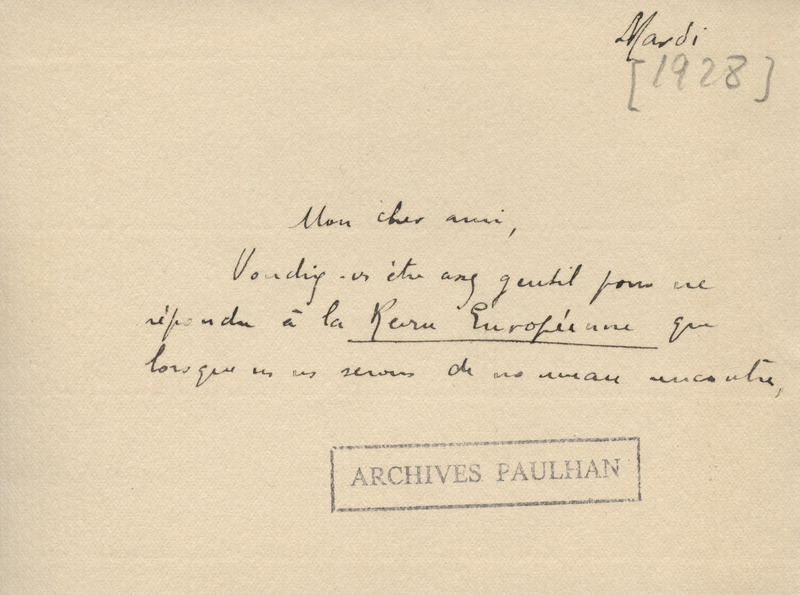 Mardi
[1928]
Mon cher ami,
Voudriez-vs être assez gentil pour ne
répondre à la Revue Européenne que
lorsque ns ns serons de nouveau rencontrés,
ARCHIVES PAULHAN